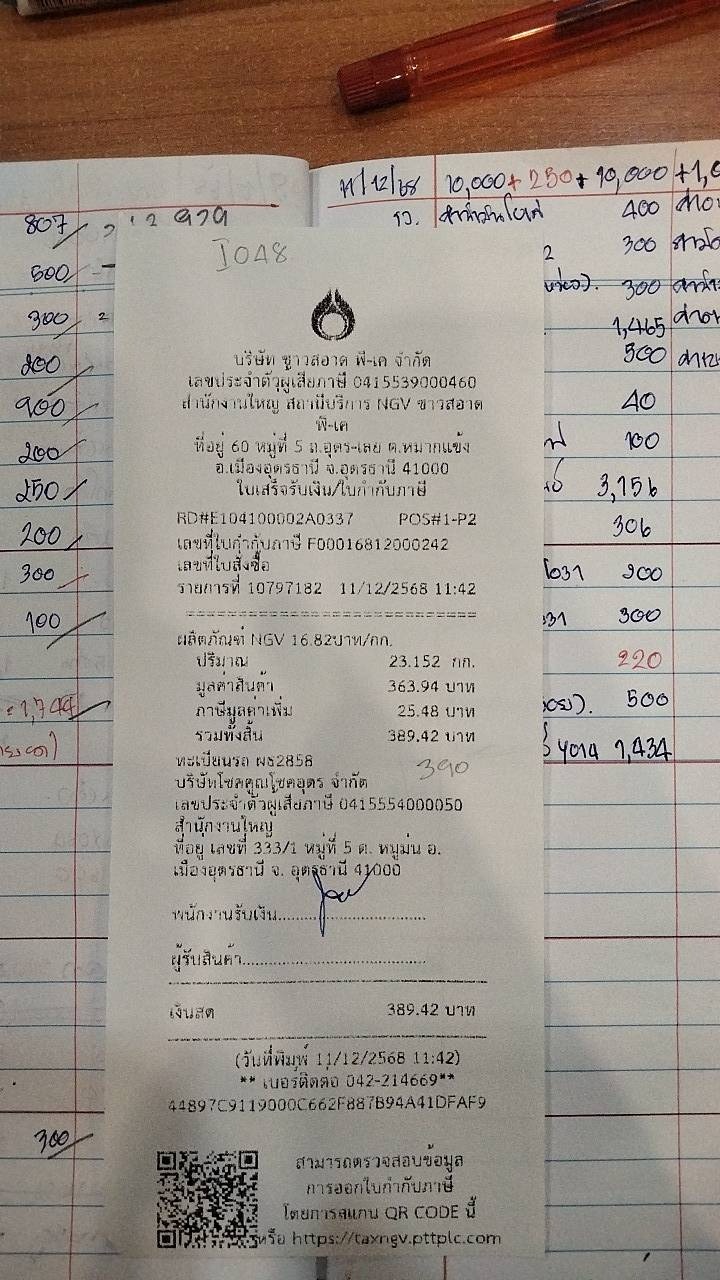 11/12/68 10,000+250+10,000+1,0
807
500
300
200
900
200
250
200
300
100
=1,744
300
I048
บริษัท ชูาวสอาด พี-เค จำกัด
เลขประจำตัวผู้เสียภาษี 0415539000460
สำนักงานใหญ่ สถานีบริการ NGV ชาวสอาด
พี-เค
ที่อยู่ 60 หมู่ที่ 5 ถ.อุดร-เลย ต.หมากแข้ง
อ.เมืองอุดรธานี จ.อุดรธานี 41000
ใบเสร็จรับเงิน/ใบกำกับภาษี
RD#E104100002A0337 POS#1-P2
เลขที่ใบกำกับภาษี F00016812000242
เลขที่ใบสั่งซื้อ
รายการที่ 10797182 11/12/2568 11:42
ผลิตภัณฑ์ NGV 16.82บาท/กก.
ปริมาณ 23.152 กก.
มูลค่าสินค้า 363.94 บาท
ภาษีมูลค่าเพิ่ม 25.48 บาท
รวมทั้งสิ้น 389.42 บาท
ทะเบียนรถ ผธ2858
390
บริษัทโชคคูณโชคอุดร จำกัด
เลขประจำตัวผู้เสียภาษี 0415554000050
สำนักงานใหญ่
ที่อยู่ เลขที่ 333/1 หมู่ที่ 5 ต. หมูม่น อ.
เมืองอุดรธานี จ. อุดรธานี 41000
พนักงานรับเงิน
ผู้รับสินค้า
เงินสด 389.42 บาท
(วันที่พิมพ์ 11/12/2568 11:42)
** เบอร์ติดต่อ 042-214669**
44897C9119000C662F887B94A41DFAF9
สามารถตรวจสอบข้อมูล
การออกใบกำกับภาษี
โดยการสแกน QR CODE นี้
หรือ https://taxngv.pttplc.com
400
300
300
1,465
500
40
100
3,156
306
200
300
220
500
1,434